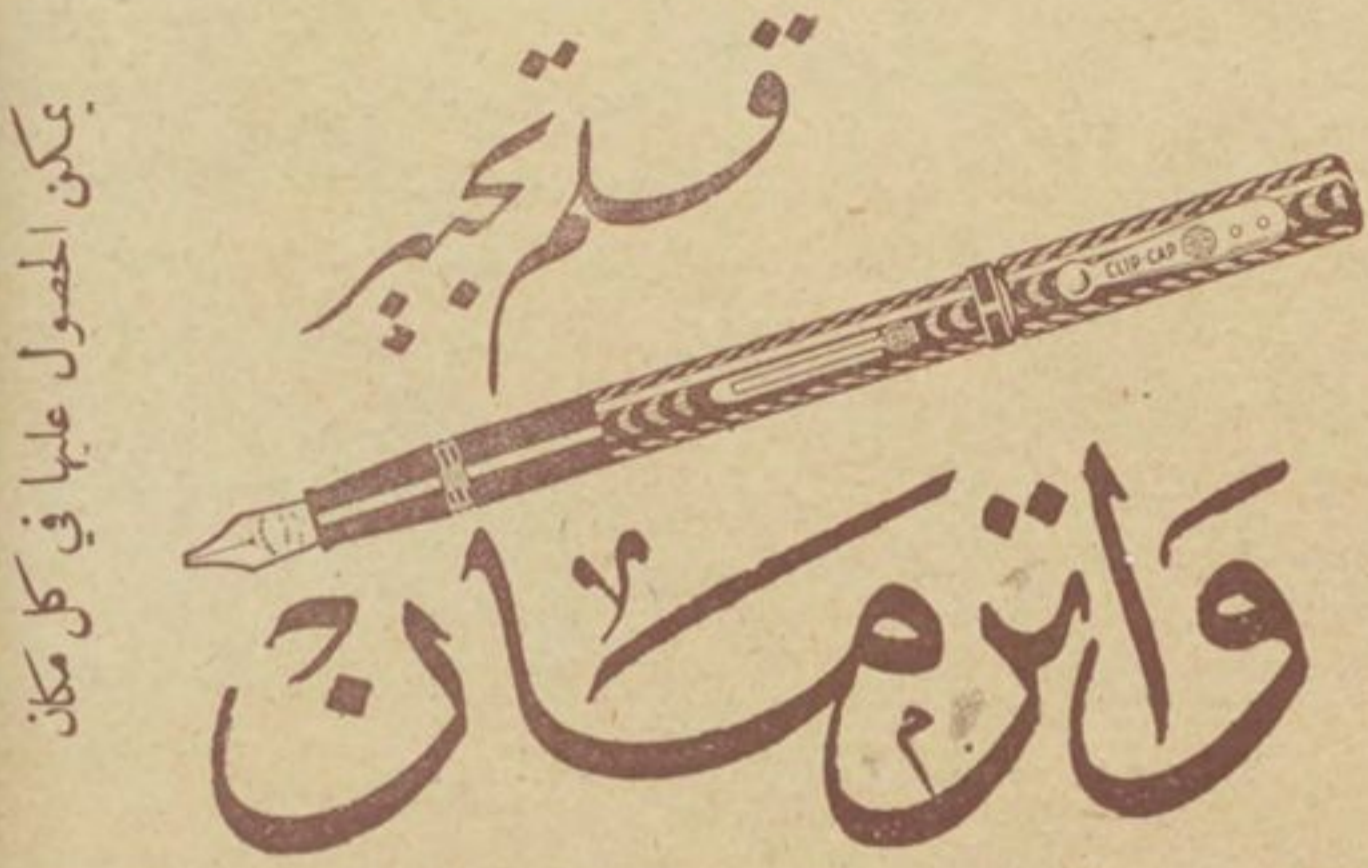 قلم تحبير
CLIP-CAP
وَاترمان
يمكن الحصول عليها في كل مكان